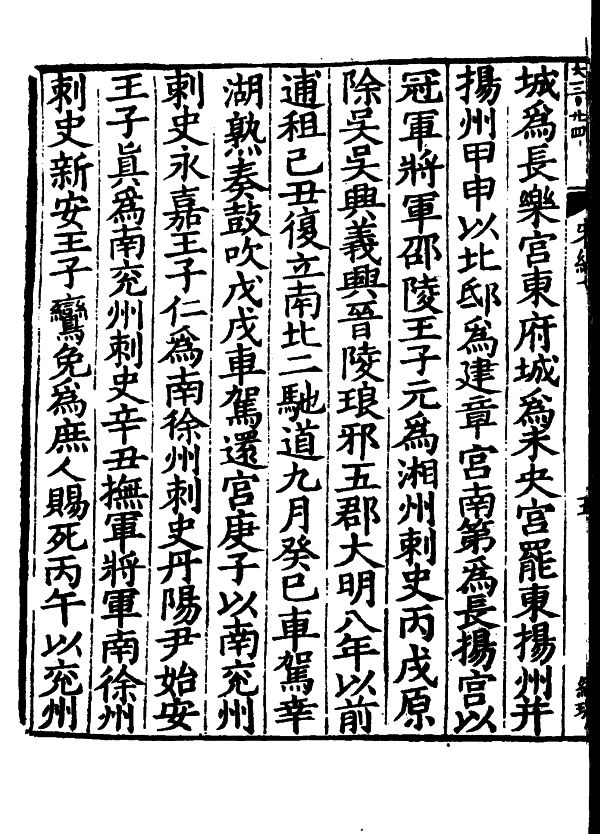 城爲長樂宮東府城爲未央宮罷東揚州并
揚州甲申以北邸爲建章宮南第爲長揚宮以
冠軍將軍邵陵王子元爲湘州刺史丙戌原
除吳吳興義興晉陵琅邪五郡大明八年以前
逋租己丑復立南北二馳道九月癸巳車駕幸
湖熟奏鼓吹戊戌車駕還宮庚子以南兖州
刺史永嘉王子仁爲南徐州刺史丹陽尹始安
王子真爲南兖州刺史辛丑撫軍將軍南徐州
刺史新安王子鸞免爲庶人賜死丙午以兖州